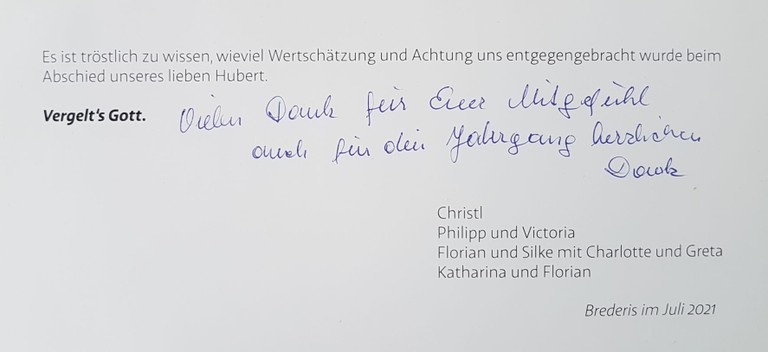 Es ist tröstlich zu wissen, wieviel Wertschätzung und Achtung uns entgegengebracht wurde beim
Abschied unseres lieben Hubert.
Vergelt's Gott. Vielen Dank für Euer Mitgefühl
auch für den Jahrgang herzlichen
Dank
Christl
Philipp und Victoria
Florian und Silke mit Charlotte und Greta
Katharina und Florian
Brederis im Juli 2021